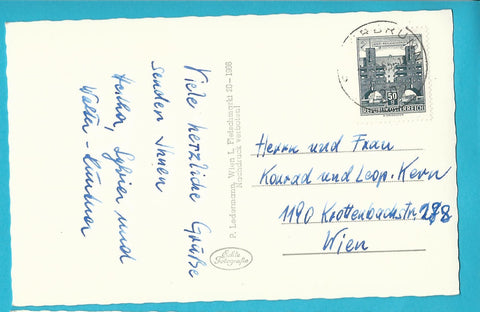 Viele herzliche Grüße
senden Ihnen
Hertha, Sylvia und
Walter
P. Ledermann, Wien I, Fleischmarkt 20 - 1966
Nachdruck verboten!
Echte
Fotografie
50
REPUBLIK ÖSTERREICH
Herrn und Frau
Konrad und Leop. Kern
1190 Krottenbachstr
Wien